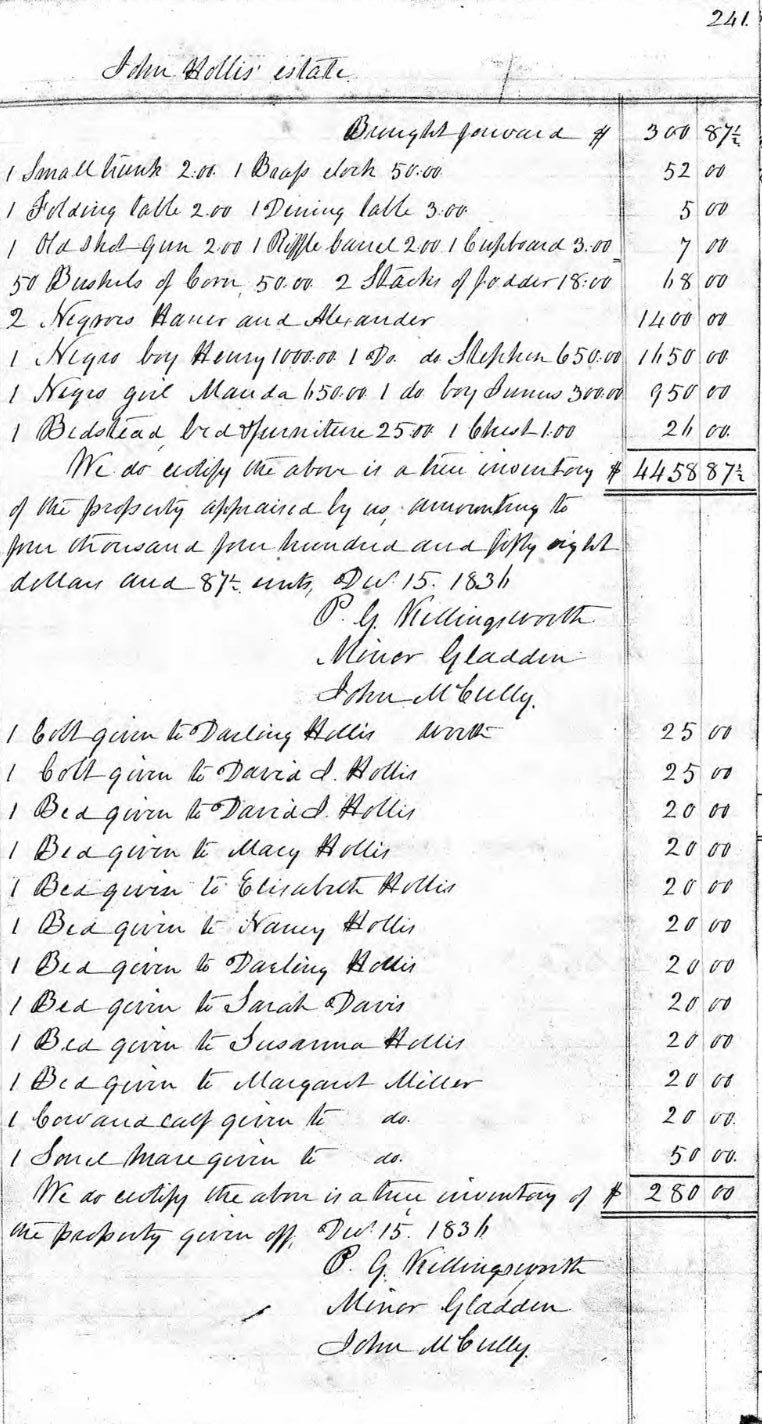 241.
John Hollis' estate
Brought forward $ 300 87½
1 Small trunk 2.00. 1 Brass clock 50.00 52 00
1 Folding table 2.00 1 Dining table 3.00 5 00
1 Old Shot Gun 2.00 1 Riffle barrel 2.00 1 Cupboard 3.00 7 00
50 Bushels of Corn, 50.00 2 Stacks of fodder 18.00 68 00
2 Negroes and Alexander 1400 00
1 Negro boy Henry 1000.00 1 Do. do. Stephen 650.00 1650 00
1 Negro girl Manda 650.00 1 do boy Junius 300.00 950 00
1 Bedstead, bed & furniture 25.00 1 Chest 1.00 26 00.
We do certify the above is a true inventory $ 4458 87½
of the property appraised by us, amounting to
four thousand four hundred and fifty eight
dollars and 87½ cents, Decr 15. 1836
P. G. Killingsworth
Minor Gladden
John McCully.
1 Colt given to Darling Hollis worth 25 00
1 Colt given to David J. Hollis 25 00
1 Bed given to David J. Hollis 20 00
1 Bed given to Mary Hollis 20 00
1 Bed given to Elisabeth Hollis 20 00
1 Bed given to Nancy Hollis 20 00
1 Bed given to Darling Hollis 20 00
1 Bed given to Sarah Davis 20 00
1 Bed given to Susanna Hollis 20 00
1 Bed given to Margaret Miller 20 00
1 Cow and calf given to do. 20 00.
1 Sorrel Mare given to do. 50 00.
We do certify the above is a true inventory of $ 280 00
the property given off, Decr 15. 1836
P. G. Killingsworth
Minor Gladden
John McCully.